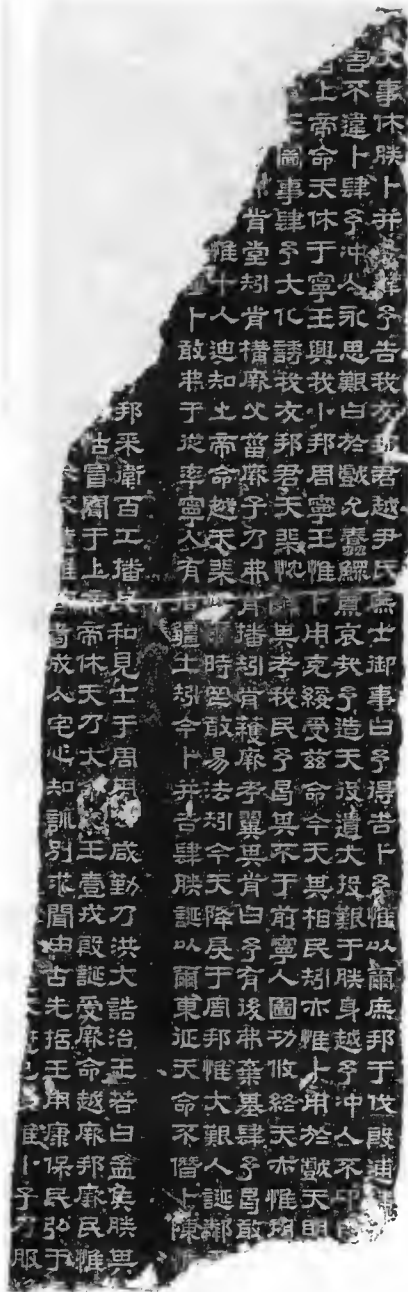 大事休朕卜并吉肆予告我友邦君越尹氏庶士御事曰予得吉卜予惟以爾庶邦于伐殷逋
害不違卜肆予沖人永思艱曰於戲允蠢鰥寡哀哉予造天役遺大投艱于朕身越予沖人不卬
上帝命天休于寧王興我小邦周寧王惟卜用克綏受茲命今天其相民矧亦惟卜用於戲天明
圖事肆予大化誘我友邦君天棐忱辭其考我民予曷其不于前寧人圖功攸終天亦惟用
肯堂矧肯構厥父菑厥子乃弗肯播矧肯穫厥考翼其肯曰予有後弗棄基肆予曷敢
惟十人迪知上帝命越天棐忱爾時罔敢易法矧今天降戾于周邦惟大艱人誕鄰
卜敢弗于從率寧人有指疆土矧今卜并吉肆朕誕以爾東征天命不僭卜陳
邦采衛百工播民和見士于周周公咸勤乃洪大誥治王若曰孟侯朕其
怙冒聞于上帝帝休天乃大命文王壹戎殷誕受厥命越厥邦厥民惟
丕遠惟商耇成人宅心知訓別求聞由古先哲王用康保民弘于
惟小子乃服